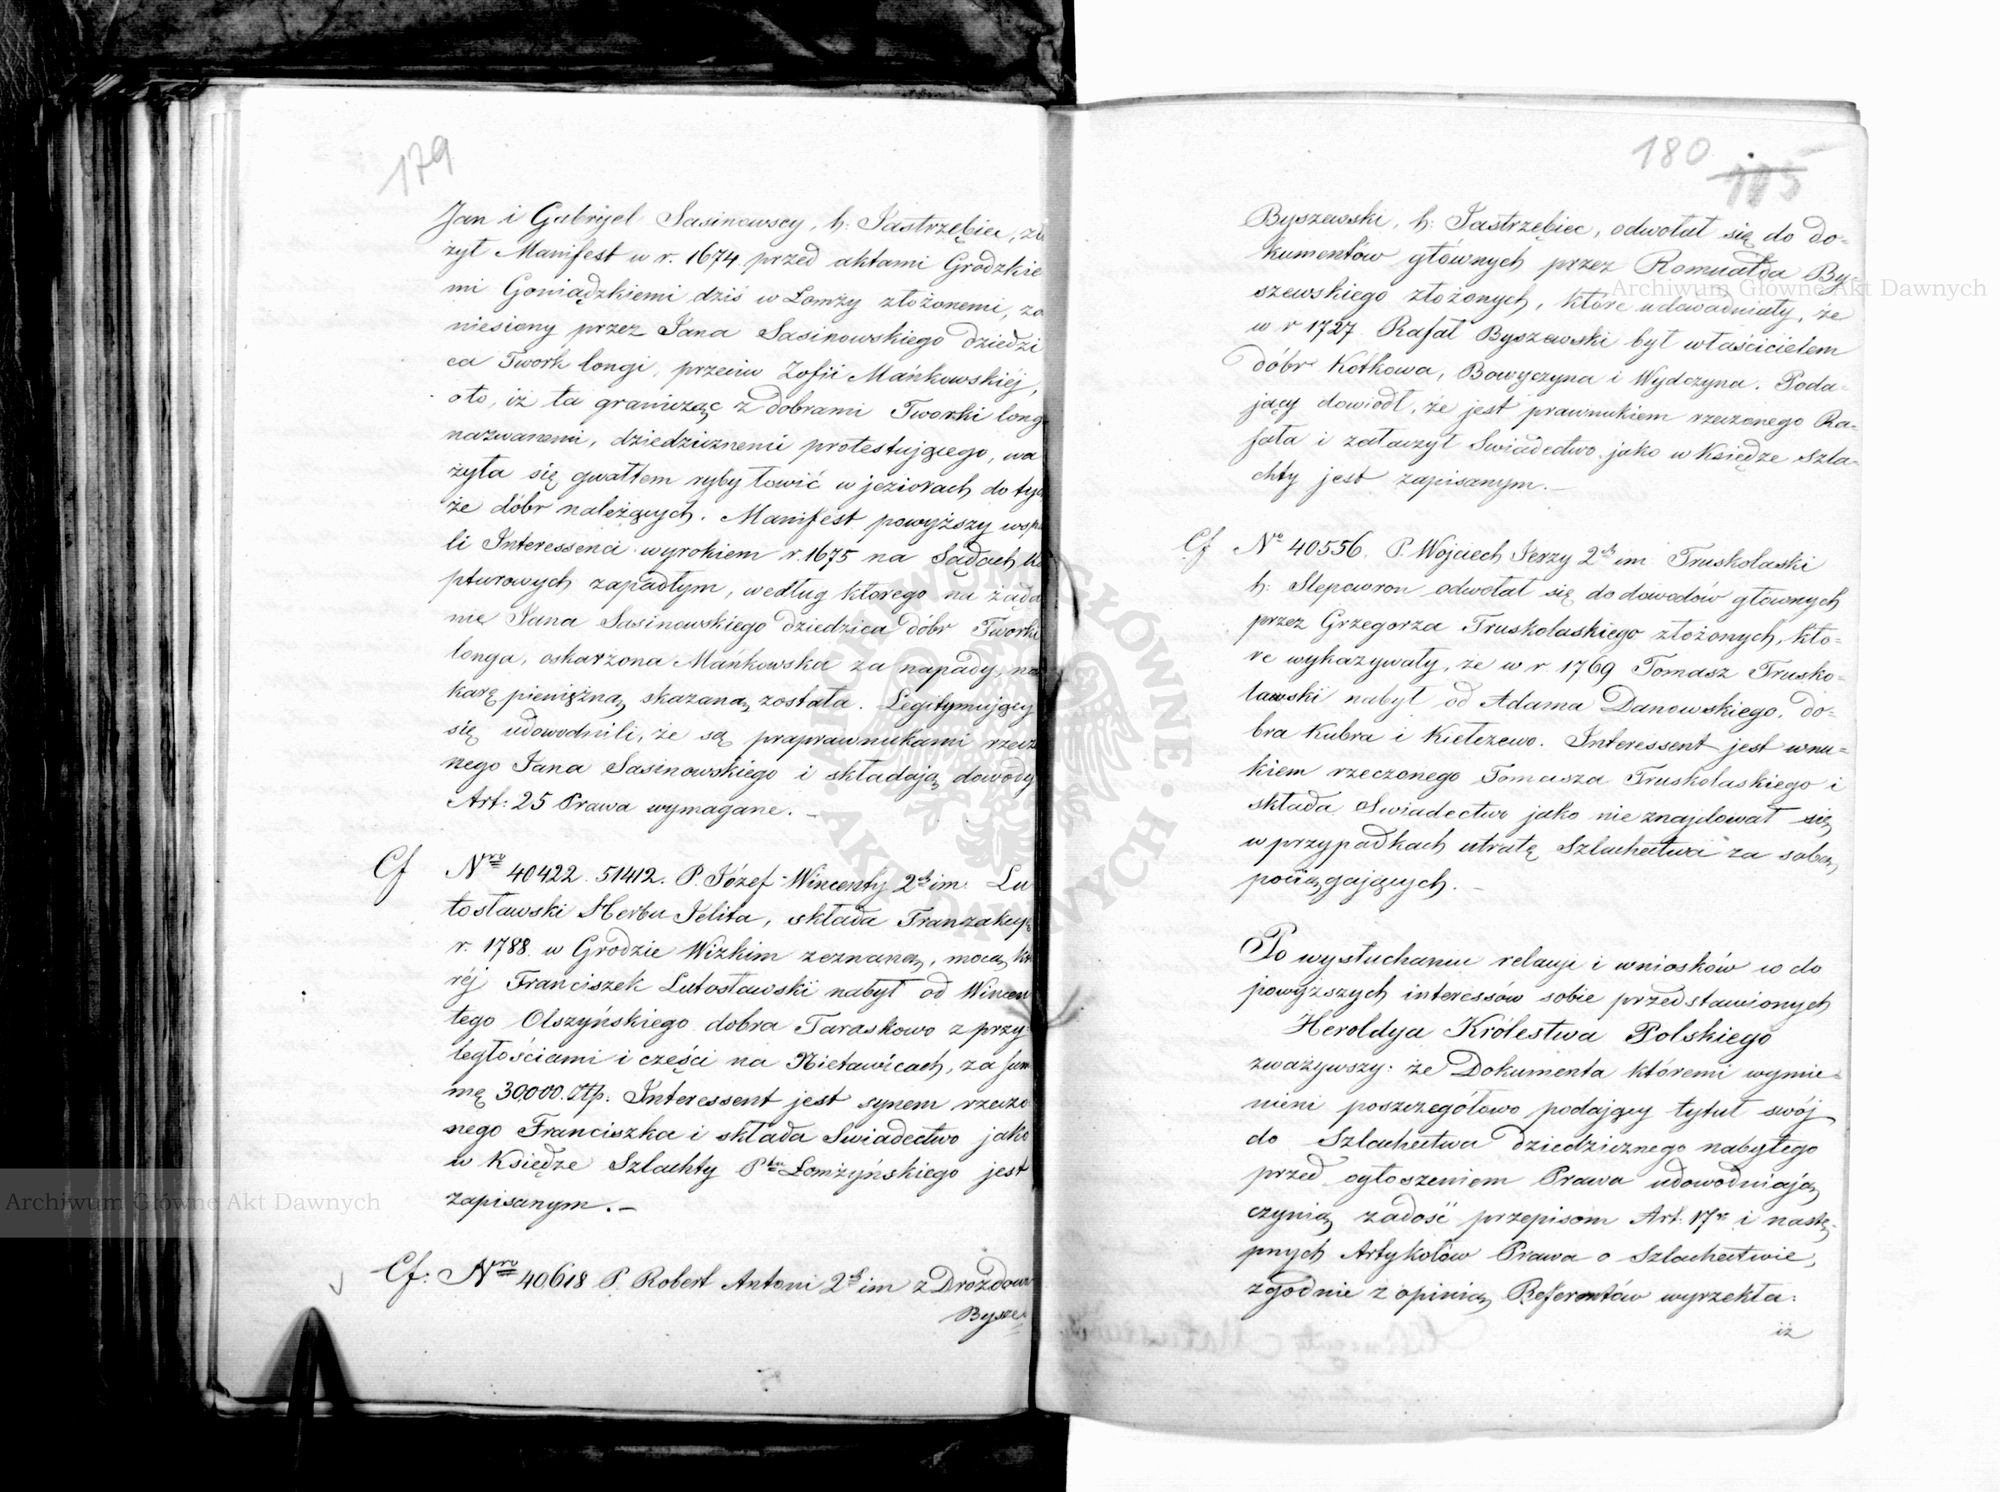 179
Jan i Gabryel Sasinowscy, h: Jastrzębiec, zło
żył Manifest w r. 1674 przed aktami Grodzkie
mi Goniądzkiemi dziś w Łomży złożonemi, za
niesiony przez Jana Sasinowskiego dziedzi
ca Twork longi, przeciw Zofii Mańkowskiéj,
oto, iż ta granicząc z dobrami Tworki long
nazwanemi, dziedzicznemi protestującego, wa
żyła się gwałtem ryby łowić w jeziorach do tych
że dóbr należących. Manifest powyższy wspar
li Interessenci wyrokiem r. 1675 na Sądach Ka
pturowych zapadłym, według którego na żąda
nie Jana Sasinowskiego dziedzica dóbr Tworki
longa, oskarżona Mańkowska za napady, na
karę pieniężną skazaną została. Legitymujący
się udowodnili, że są praprawnukami rzeczo
nego Jana Sasinowskiego i składają dowody
Art: 25 Prawa wymagane. –
Cf Nro 40422. 51412. P. Józef Wincenty 2ch im. Lu
tosławski Herbu Jelita, składa Tranzakcyę
r. 1788 w Grodzie Wizkim zeznaną, mocą któ
réj Franciszek Lutosławski nabył od Wincen
tego Olszyńskiego dobra Taraskowo z przy
ległościami i części na Mieławicach, za sum
mę 30,000. Złp. Interessent jest synem rzeczo
nego Franciszka i składa Swiadectwo jako
w Księdze Szlachty Ptu Łomżyńskiego jest
zapisanym. –
Cf: Nro 40618 P. Robert Antoni 2ch im z Drozdowa
Bysze=
180
115
Byszewski, h: Jastrzębiec, odwołał się do do=
kumentów głównych przez Romualda By=
szewskiego złożonych, które udowadniały, że
w r 1727 Rafał Byszewski był właścicielem
dóbr Kotkowa, Bowyczyna i Wydczyna. Poda=
jący dowiódł, że jest prawnukiem rzeczonego Ra=
fała i załączył Swiadectwo jako w Księdze Szla=
chty jest zapisanym. –
Cf No 40556. P. Wojciech Jerzy 2ch im Truskolaski
h: Slepowron odwołał się do dowodów głównych
przez Grzegorza Truskolaskiego złożonych, któ=
re wykazywały, że w r. 1769 Tomasz Trusko=
lawski nabył od Adama Danowskiego, do=
bra Kubra i Kiełczewo. Interessent jest wnu=
kiem rzeczonego Tomasza Truskolaskiego i
składa Swiadectwo jako nie znajdował się
w przypadkach utratę Szlachectwa za sobą
pociągających. –
Po wysłuchaniu relacyi i wniosków co do
powyższych interessów sobie przedstawionych
Heroldya Królestwa Polskiego
zważywszy: że Dokumenta któremi wymie=
nieni poszczegółowo podający tytuł swój
do Szlachectwa dziedzicznego nabytego
przed ogłoszeniem Prawa udowodniają,
czynią zadość przepisom Art. 17o i nastę=
pnych Artykułów Prawa o Szlachectwie,
zgodnie z opinią Referentów wyrzekła:
iż
Archiwum Główne Akt Dawnych
Archiwum Główne Akt Dawnych
ARCHIWUM GŁÓWNE · AKT DAWNYCH ·